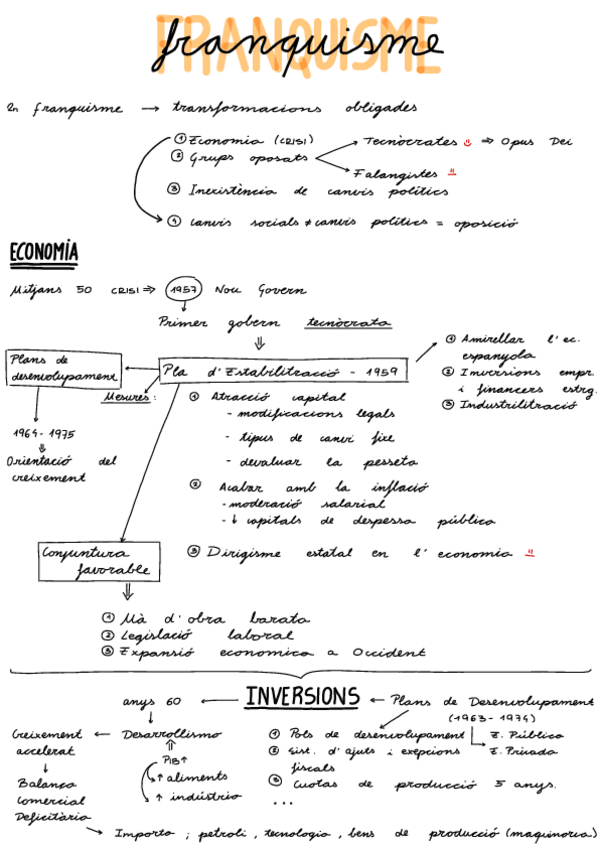 FRANQUISME
franquisme
2n franquisme → transformacions obligades
① Economia (CRISI)
② Grups oposats
→ Tecnòcrates ⇒ Opus Dei
→ Falangistes
③ Inexistència de canvis polítics
④ Canvis socials ≠ canvis polítics = oposició
ECONOMÍA
Mitjans 50 CRISI ⇒ 1957 Nou Govern
Primer gobern tecnòcrata
⇓
Plans de desenvolupament
Pla d'Estabilització - 1959
① Amirellar l'ec. espanyola
② Inversions empr. i financers estrg.
③ Industrilització
Mesures:
① Atracció capital
- modificacions legals
- tipus de canvi fixe
- devaluar la pesseta
1964-1975
⇓
Orientació del creixement
② Acabar amb la inflació
- moderació salarial
- ↓ capitals de despessa pública
③ Dirigisme estatal en l'economia
Conjuntura favorable
⇓
① Mà d'obra barata
② Legislació laboral
③ Expansió economica a Occident
anys 60 ← INVERSIONS ← Plans de Desenvolupament
(1963-1974)
Creixement accelerat ← Desarrollismo
① Pols de desenvolupament
E. Pública
② Sist. d'ajuts i exepcions fiscals
E. Privada
PIB↑
↑ aliments
↑ indústria
③ Cuotas de producció 5 anys.
...
Balança
Comercial
Deficitària
→ Importa ; petroli , tecnologia , bens de producció (maquinaria)